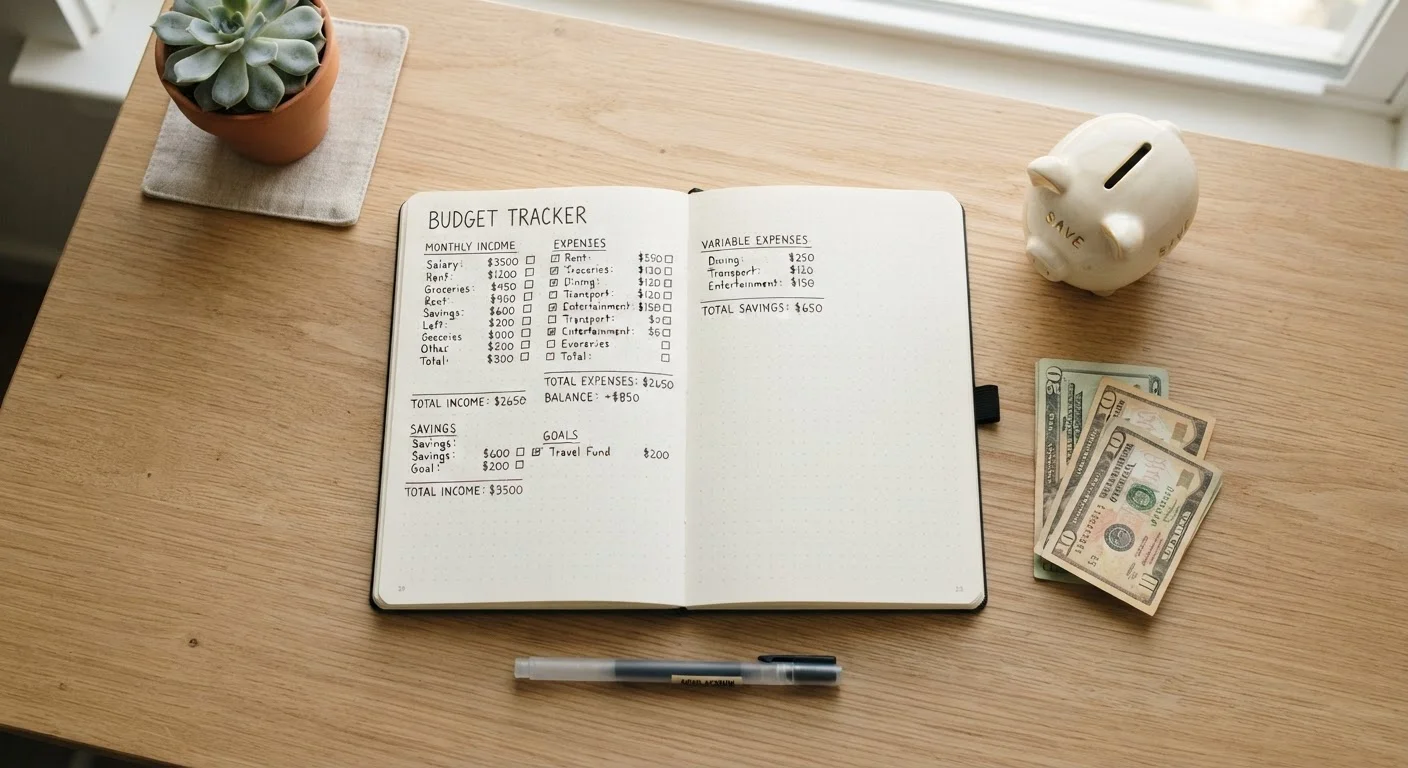 BUDGET TRACKER
MONTHLY INCOME
Salary: $3500
Rent: $1200
Groceries: $450
$900
Savings: $600
Left: $200
$000
Other $200
Total: $300
TOTAL INCOME: $2650
SAVINGS
Savings:
Savings: $600
Goal: $200
TOTAL INCOME: $3500
EXPENSES
Rent:
$130
$120
Transport: $120
Entertainment: $150
Transport:
Entertainment:
Total:
TOTAL EXPENSES: $2650
BALANCE: +$850
GOALS
Travel Fund $200
VARIABLE EXPENSES
$250
Transport: $120
Entertainment: $150
TOTAL SAVINGS: $650
SAVE
20
10
10
10